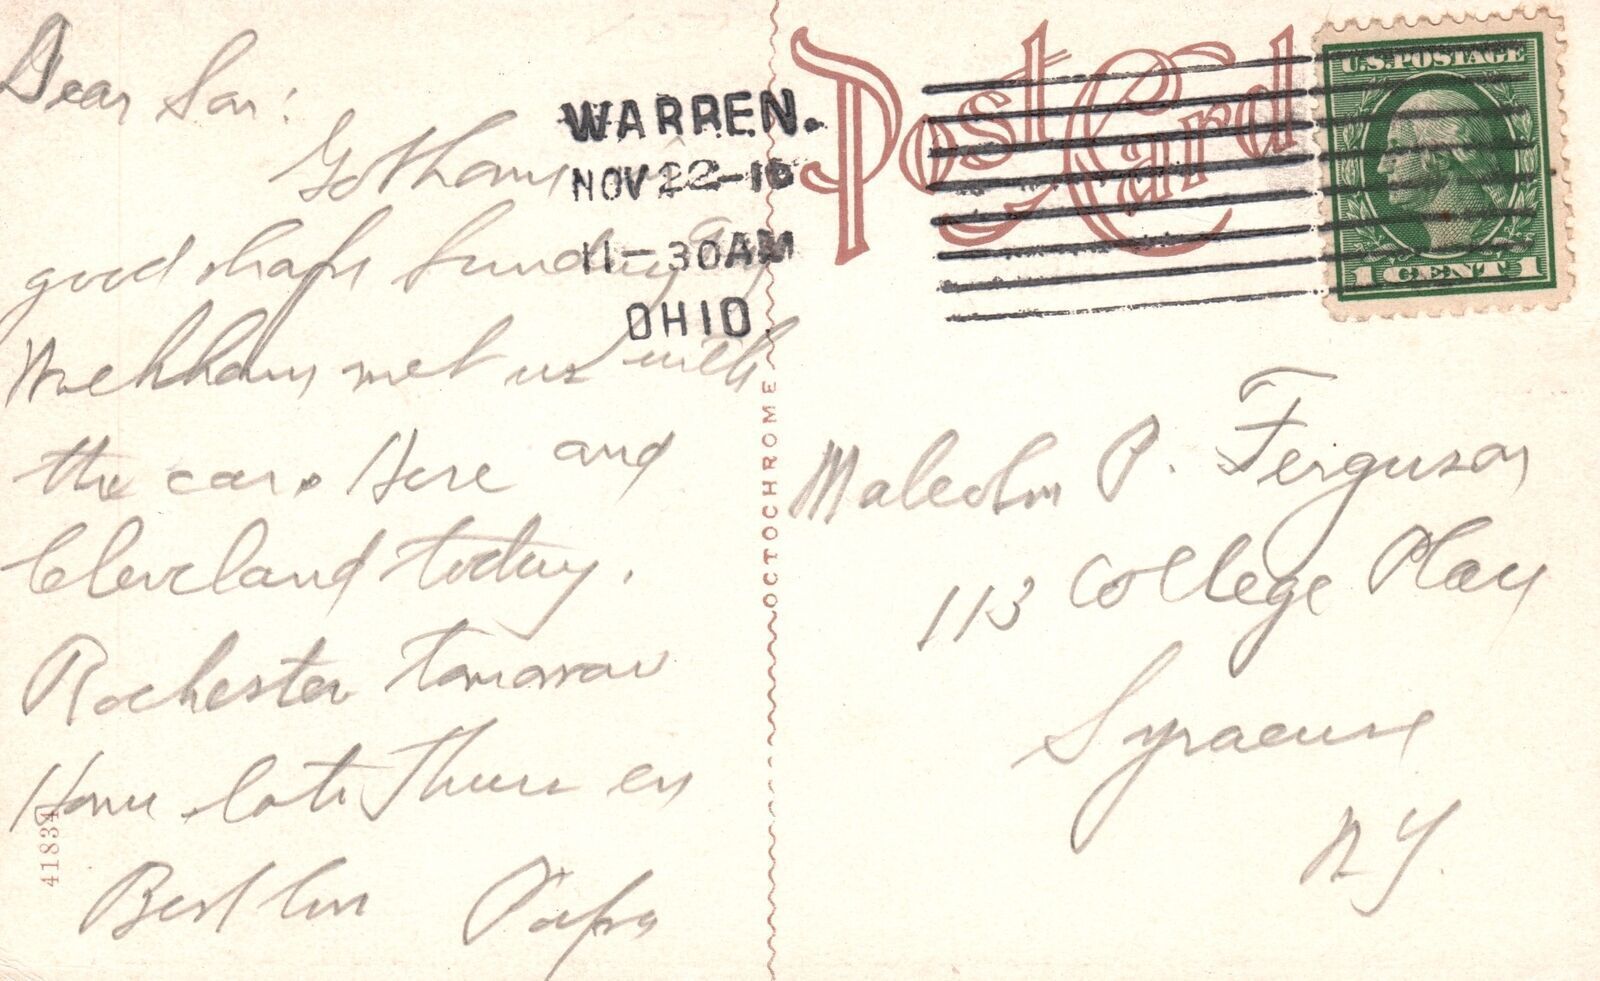 Post Card
U.S. POSTAGE
1 CENT 1
WARREN.
NOV 22
11-30AM
OHIO.
Dear Son:
good shape Sunday
met us with
the car. Here and
Cleveland today.
Rochester tomorrow
Home late Thurs
Best love Papa
OCTOCHROME
41834
Malcolm P. Ferguson
113 College Place
Syracuse
N.Y.